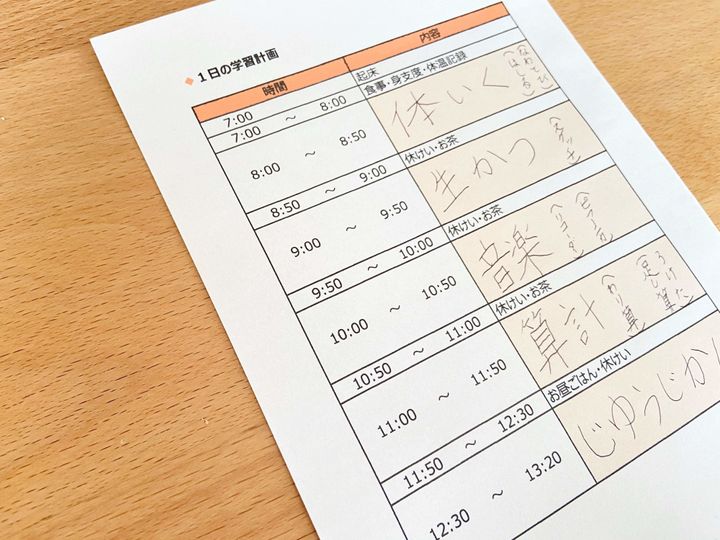 ◆１日の学習計画
時間 内容
7:00 起床
7:00 ～ 8:00 食事・身支度・体温記録
8:00 ～ 8:50 体いく (なわとび) (はしる)
8:50 ～ 9:00 休けい・お茶
9:00 ～ 9:50 生かつ (スケッチ)
9:50 ～ 10:00 休けい・お茶
10:00 ～ 10:50 音楽 (リコーダー)
10:50 ～ 11:00 休けい・お茶
11:00 ～ 11:50 算計 (わり算) (足し算)
11:50 ～ 12:30 お昼ごはん・休けい
12:30 ～ 13:20 じゆうじかん